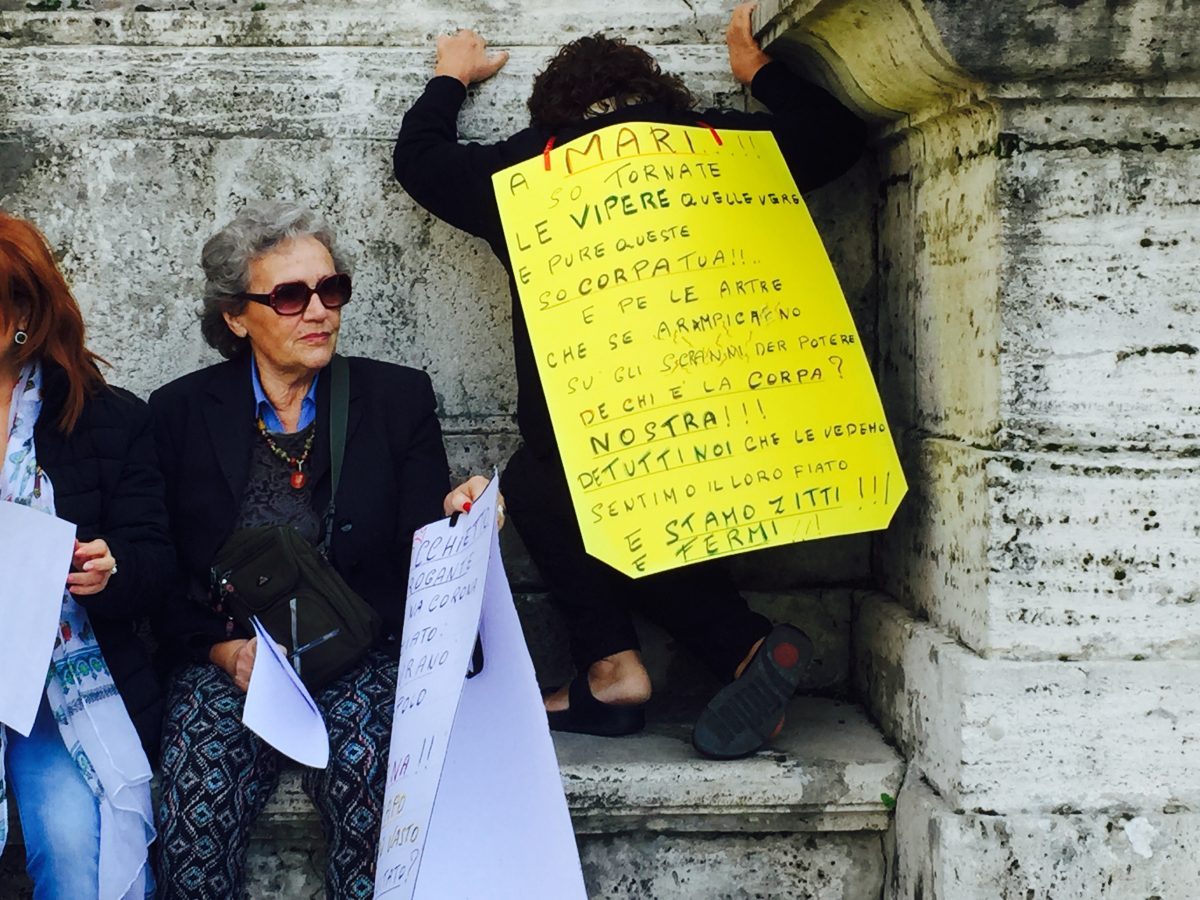 A MARI'.....!!
SO TORNATE
LE VIPERE QUELLE VERE
E PURE QUESTE
SO CORPA TUA!!..
E PE LE ARTRE
CHE SE ARAMPICHENO
SU GLI SCRANNI DER POTERE
DE CHI E' LA CORPA?
NOSTRA!!!
DE TUTTI NOI CHE LE VEDEMO
SENTIMO IL LORO FIATO
E STAMO ZITTI!!!
E FERMI!!!
CCHIETT
ROGANTE
NA CORONA
IATO:
RANO
POLO
NA!!
APO
VASTO
TATO?